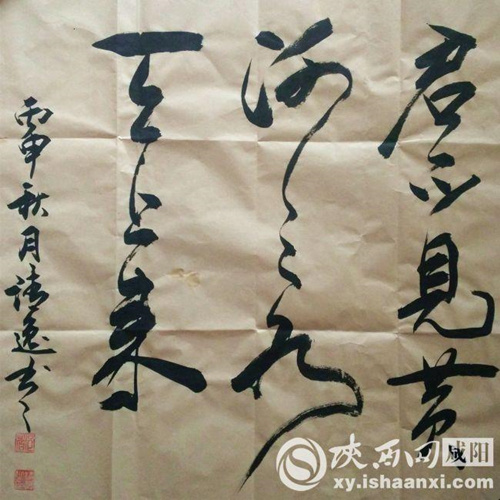 君不見黄
河之水
天上来
丙申秋月逸书
陕西网 咸阳
xy.ishaanxi.com